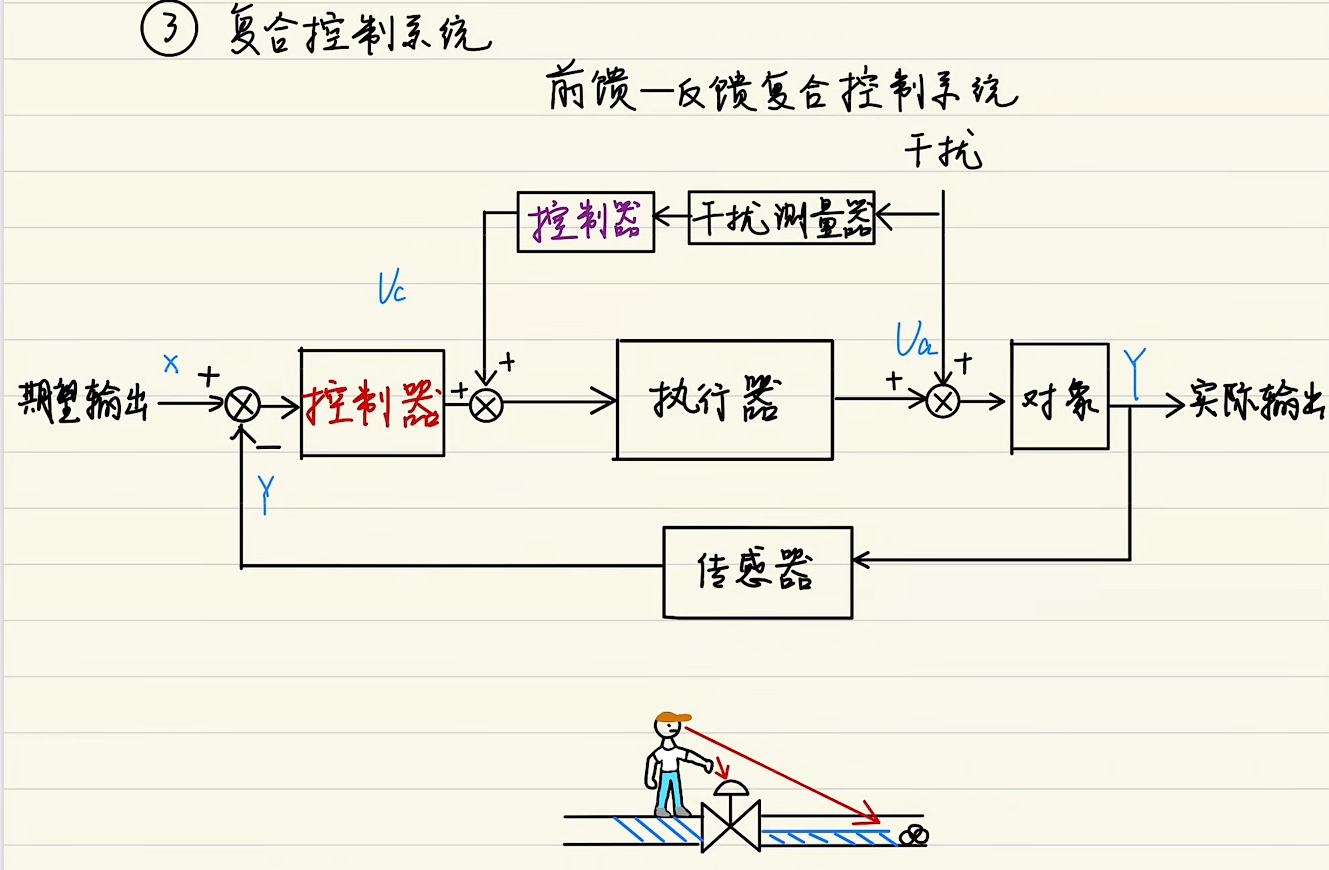 ③ 复合控制系统
前馈—反馈复合控制系统
干扰
控制器 干扰测量器
Uc
Ua
x + + + + + Y
期望输出 控制器 执行器 对象 实际输出
−
Y
传感器